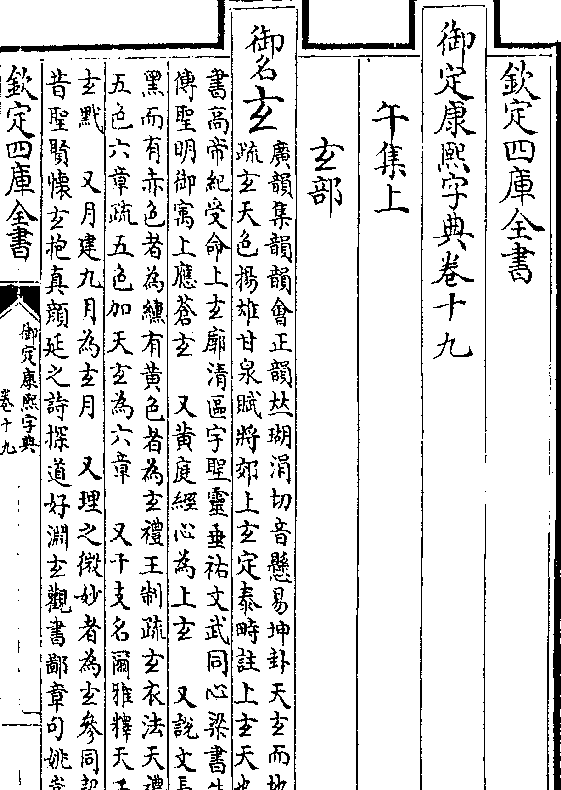 欽定四庫全書
御定康熙字典卷十九
午集上
玄部
御名玄
廣韻集韻韻會正韻𠀤瑚涓切音懸易坤卦天玄而地
疏玄天色揚雄甘泉賦將郊上玄定泰畤註上玄天也
書高帝紀受命上玄廓清區宇聖靈垂祐文武同心梁書
傳聖明御寓上應蒼玄 又黃庭經心為上玄 又說文
黑而有赤色者為纁有黃色者為玄禮王制疏玄衣法天禮
五色六章疏五色加天玄為六章 又干支名爾雅釋天
玄黓 又月建九月為玄月 又理之微妙者為玄參同契
昔聖賢懷玄抱真顔延之詩探道好淵玄觀書鄙章句姚
欽定四庫全書
御定康熙字典
卷十九